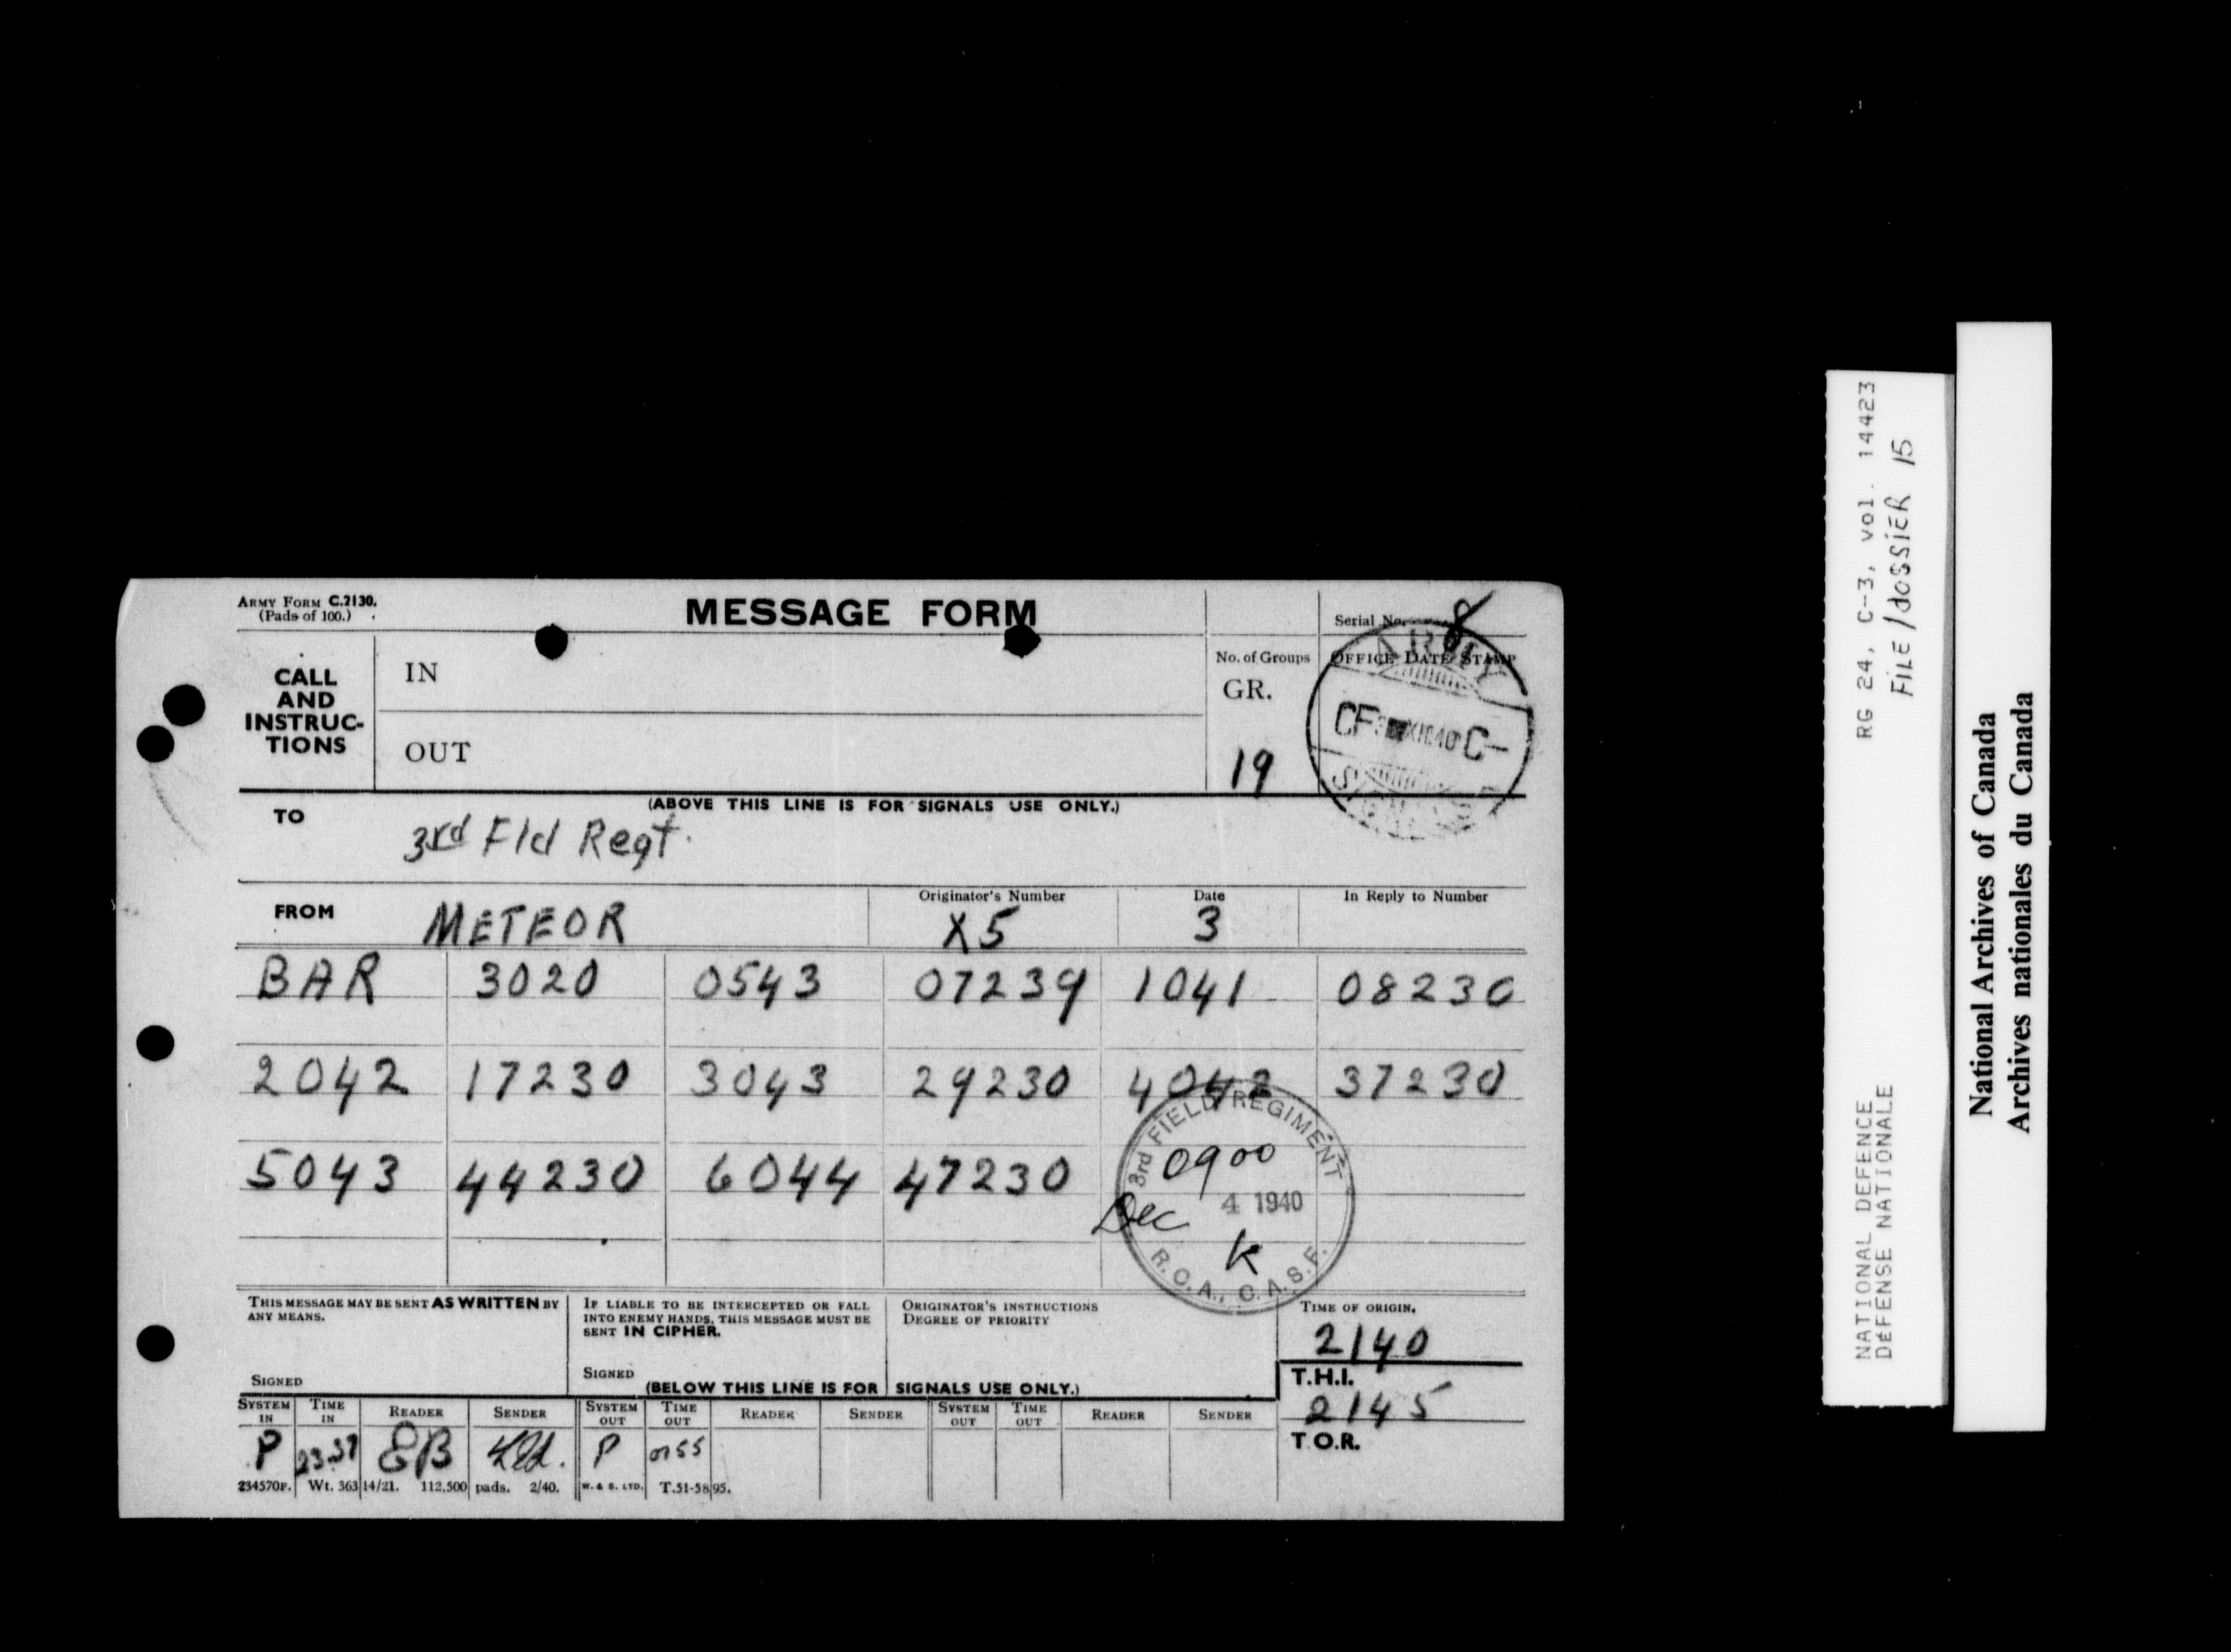 ARMY FORM C.2130.
(Pads of 100.)
MESSAGE FORM
Serial No. 8
CALL AND INSTRUC-TIONS
IN
OUT
No. of Groups
GR.
19
OFFICE DATE STAMP
ARMY
CF XII.40 C-
SIGNALS
(ABOVE THIS LINE IS FOR SIGNALS USE ONLY.)
TO 3rd Fld Regt.
FROM METEOR
Originator's Number X5
Date 3
In Reply to Number
BAR 3020 0543 07239 1041 08230
2042 17230 3043 29230 4042 37230
5043 44230 6044 47230
3rd FIELD REGIMENT
0900
Dec 4 1940
K
R.C.A., C.A.S.F.
THIS MESSAGE MAY BE SENT AS WRITTEN BY ANY MEANS.
SIGNED
IF LIABLE TO BE INTERCEPTED OR FALL INTO ENEMY HANDS, THIS MESSAGE MUST BE SENT IN CIPHER.
SIGNED
ORIGINATOR'S INSTRUCTIONS DEGREE OF PRIORITY
TIME OF ORIGIN.
2140
T.H.I.
2145
T.O.R.
(BELOW THIS LINE IS FOR SIGNALS USE ONLY.)
SYSTEM IN TIME IN READER SENDER SYSTEM OUT TIME OUT READER SENDER SYSTEM OUT TIME OUT READER SENDER
P 23.37 EB P 0755
234570F. Wt. 36314/21. 112,500 pads. 2/40. W. & S. LTD. T.51-5895.
RG 24, C-3, vol. 14423
FILE/dOSSiER 15
NATIONAL DEFENCE
DÉFENSE NATIONALE
National Archives of Canada
Archives nationales du Canada